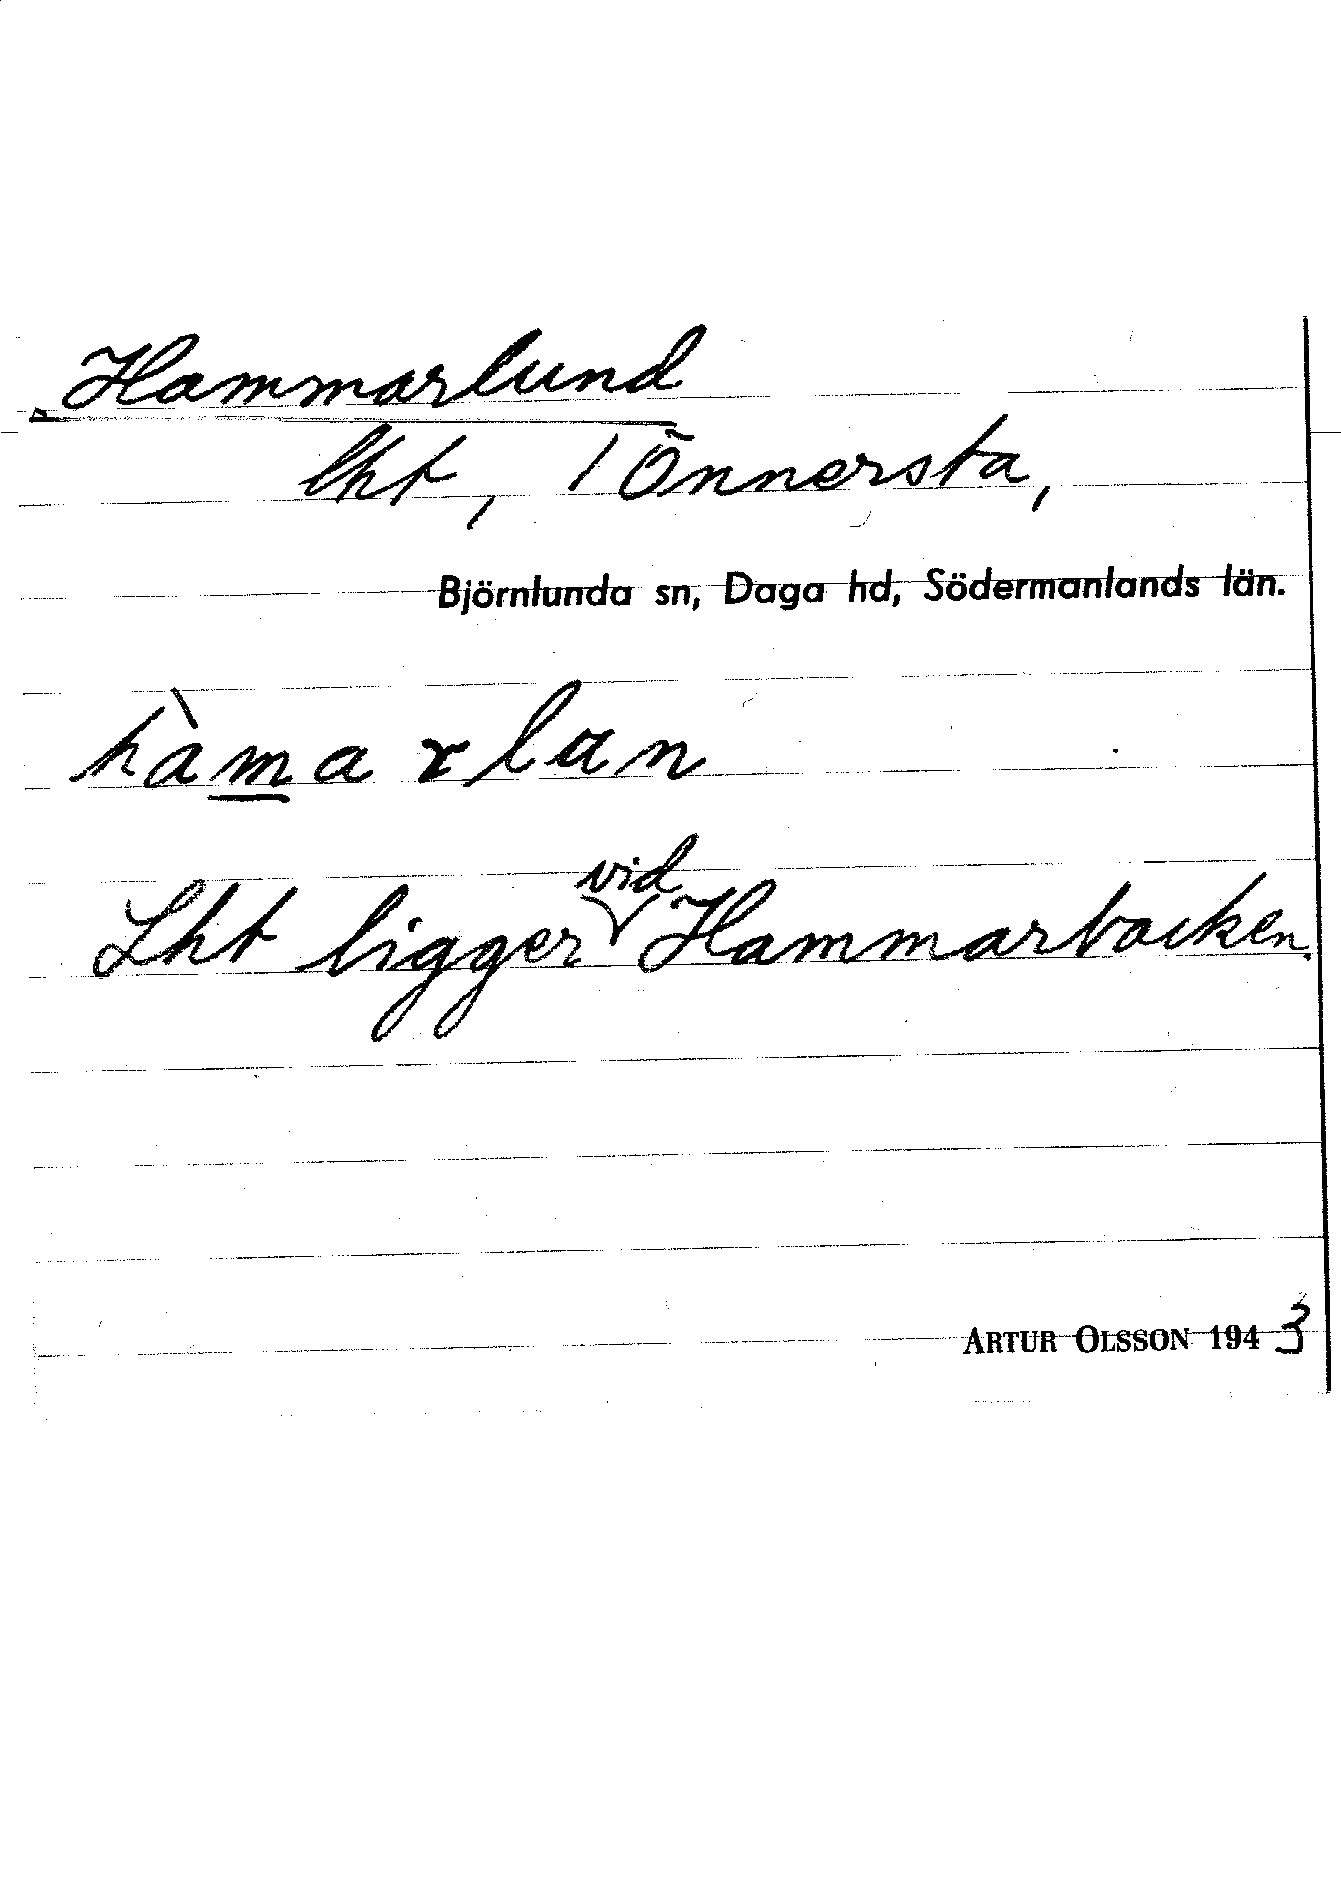 Hammarlund
lht, 1 Önnersta,
Björnlunda sn, Daga hd, Södermanlands län.
hàmarlan
Lht ligger vid Hammarbacken.
ARTUR OLSSON 1943